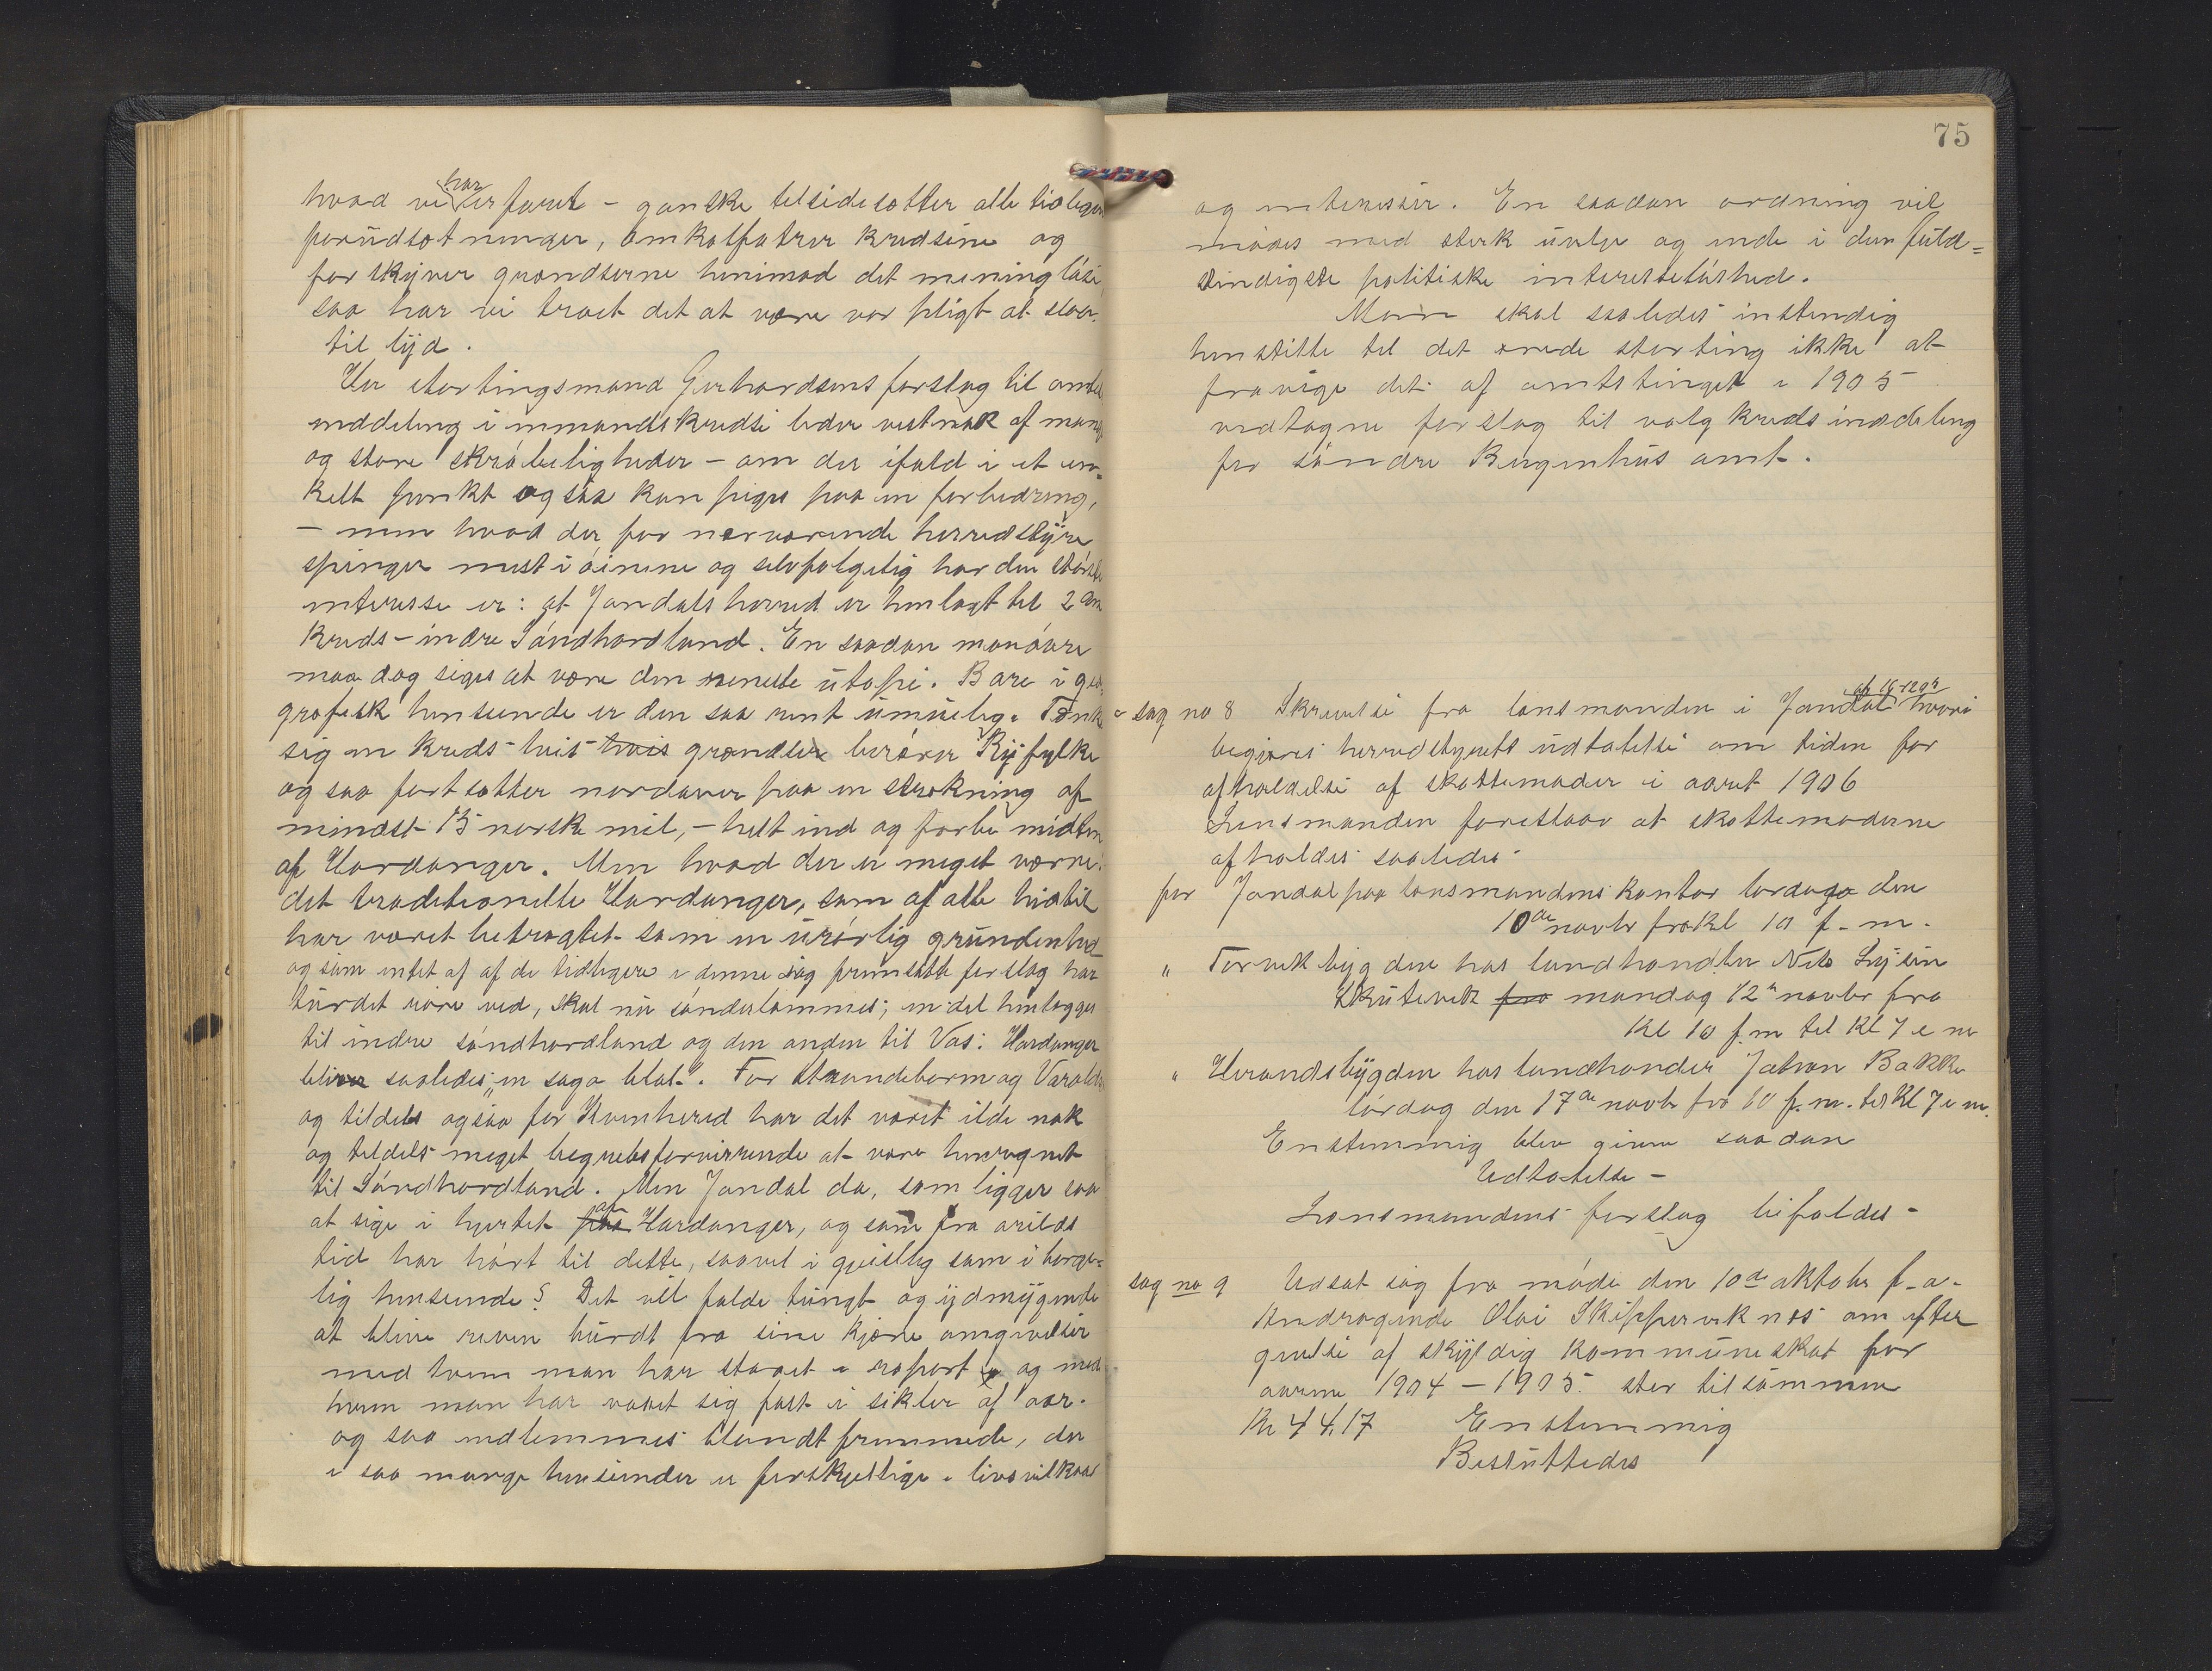 hvad vi har erfaret – ganske tilsidesætter alle tidligere
forudsætninger, omkalfatrer kredsene og
forskyver grændserne henimod det meningløse,
saa har vi troet det at være vor pligt at slaa
til lyd.
Hr stortingsmand Gerhardsens forslag til amtets
inddeling i enmandskredse lider vistnok af mange
og store skrøbeligheder – om der ifald i et en=
kelt punkt ogsaa kan piges paa en forbedring,
– men hvad der for nærværende herredstyre
springer mest i øinene og selvfølgelig har den største
interesse er: at Jondals herred er henlagt til 2den
kreds – indre Søndhordland. En saadan manøvre
maa dog siges at være den reneste utopi. Bare i geo=
grafisk henseende er den saa rent umuelig. Tænke
sig en kreds hvis hvis grændser berører Ryfylke
og saa fortsætter nordover paa en strekning af
mindst 15 norske mil, – helt ind og forbi midten
af Hardanger. Men hvad der er meget værre:
det traditionelle Hardanger, som af alle hidtil
har været betragtet som en urørlig grundenhed
og som intet af af de tidligere i denne sag fremsatte forslag har
turdet røre ved, skal nu sønderlemmes; en del henlægges
til indre søndhordland og den anden til Vos. Hardanger
bliver saaledes „en saga blot". For Strandebarm og Varaldsø
og tildels ogsaa for Kvinherred har det været ilde nok
og tildels meget begrebsforvirrende at være henregnet
til Søndhordland. Men Jondal da, som ligger saa
at sige i hjertet paa af Hardanger, og som fra arilds
tid har hørt til dette, saavel i geistlig som i borger=
lig henseende? Det vil falde tungt og ydmygende
at blive reven burdt fra sine kjære omgivelser
med hvem man har staaet i raport og med
hvem man har voxet sig fast i sikler af aar.
og saa indlemmes blandt fremmede, der
i saa mange henseender er forskjellige i livsvilkaar
75
og interesser. En saadan ordning vil
mødes med sterk uvilje og ende i den fuld=
stindigste politiske interesseløshed.
Man skal saaledes instendig
henstille til det ærede storting ikke at
fravige det af amtstinget i 1905
vedtagne forslag til valgkredsinddeling
for søndre Bergenhus amt.
sag no 8 Skrivelse fra lensmanden i Jondal hvori
begjæres herredstyrets udtalelse om tiden for
afholdelse af skattemøder i aaret 1906
Lensmanden foreslaar at skattemøderne
afholdes saaledes
for Jondal paa lensmandens kontor lørdag den
10de novbr fra kl 10 f. m.
„ Torvikbygden hos landhandler Nils Lysen
Skutevik fra mandag 12te novbr fra
Kl 10 f.m til Kl 7 e m
„ Herandsbygden hos landhander Johan Bakke
lørdag den 17de novbr fra 10 f. m. til Kl 7 e m.
Enstemmig blev given saadan
Udtalelse –
Lensmandens forslag bifaldes –
sag no 9 Udsat sag fra møde den 10de oktobr f. a.
Andragende Oloi Skipperveknes om efter
givelse af skyldig kommuneskat for
aarene 1904 – 1905. stor tilsammen
Kr 44.17 Enstemmig
Besluttedes